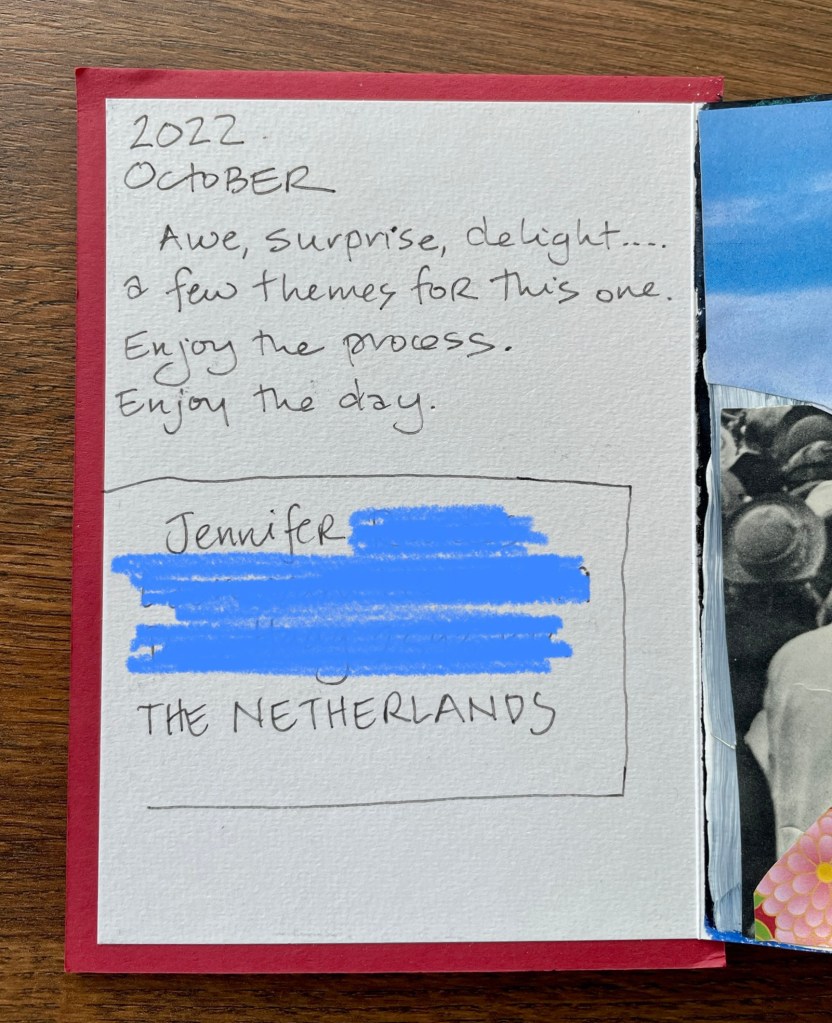 2022
OCTOBER
Awe, surprise, delight....
a few themes for this one.
Enjoy the process.
Enjoy the day.
Jennifer
THE NETHERLANDS